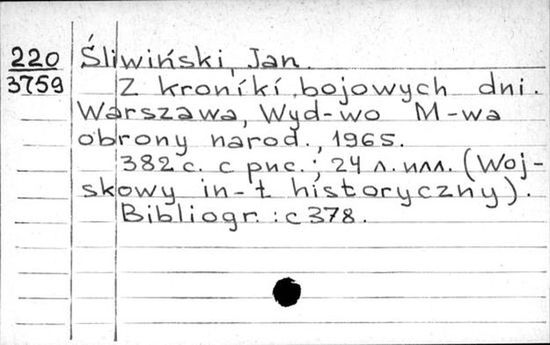 220 Śliwiński, Jan.
3759 Z kroniki bojowych dni.
Warszawa, Wyd-wo M-wa
obrony narod., 1965.
382 с. с рис.; 24 л. илл. (Woj-
skowy in-t historyczny).
Bibliogr.: с 378.